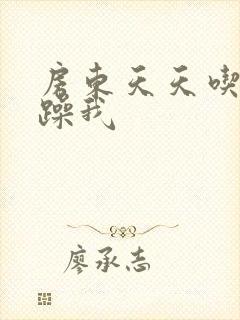 房东天天喫
躁我
廖承志